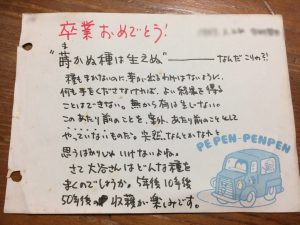 卒業おめでとう!
"蒔かぬ種は生えぬ"――なんだこりゃ?!
種もまかないのに、芽が出るわけはないように、
何も手をくださなければ、よい結果を得る
ことはできない。無から有は生じない。
このあたり前のことを、案外、あたり前のこととして
やっていないものだ。突然、なんとかなれと
思うばかりじゃいけないよね。
さて大谷さんはどんな種を
まくのでしょうか。5年後10年後
50年後の収穫が楽しみです。
PEPEN-PENPEN